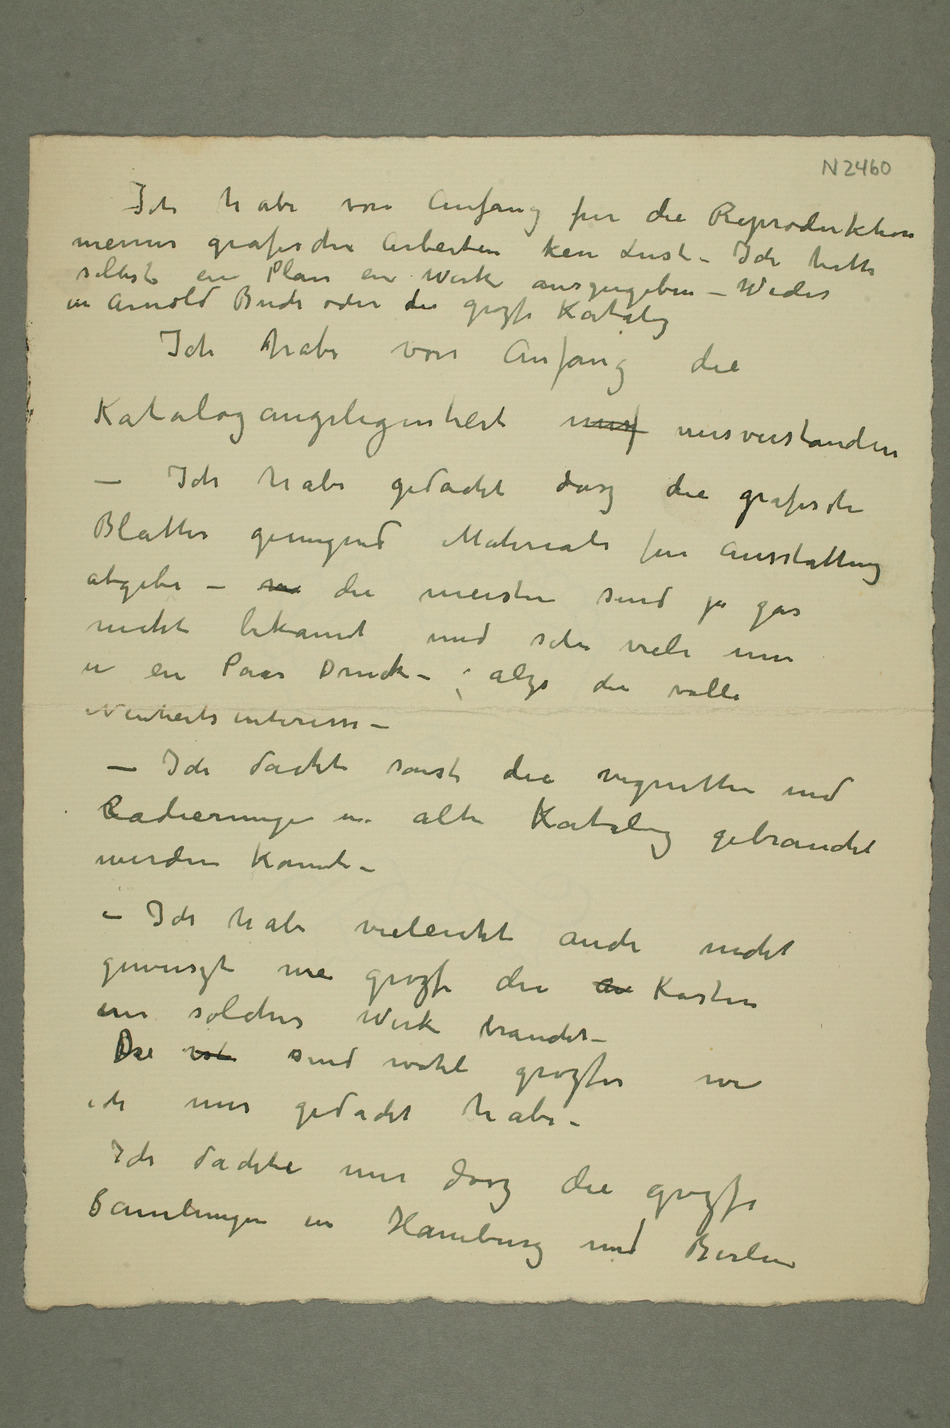 N 2460
Ich habe von Anfang für die Reproduktion
meiner grafischen Arbeiten kein Lust – Ich hatte
selbst ein Plan ein Werk auszugeben – Weder
in Arnold Buch oder die grozse Katalog
Ich habe von Anfang die
Katalogangelegenheit misverstanden
– Ich habe gedacht dasz die grafische
Blätter genugend Materiale für Ausstattung
abgebe – die meisten sind ja gar
nicht bekannt und sehr viele nur
in ein Paar Druck – ; alzo die volle
Neuheitsinteresse –
– Ich dachte sonst die vignetten und
Radierungen in alte Katalog gebraucht
werden konnte –
– Ich habe vieleicht auch nicht
gewuszt wie grozse die Kosten
ein solches Werk braucht –
Die sind wohl grozser wie
ich mir gedacht habe –
Ich dachte mir dasz die grozse
Samlungen in Hamburg und Berlin